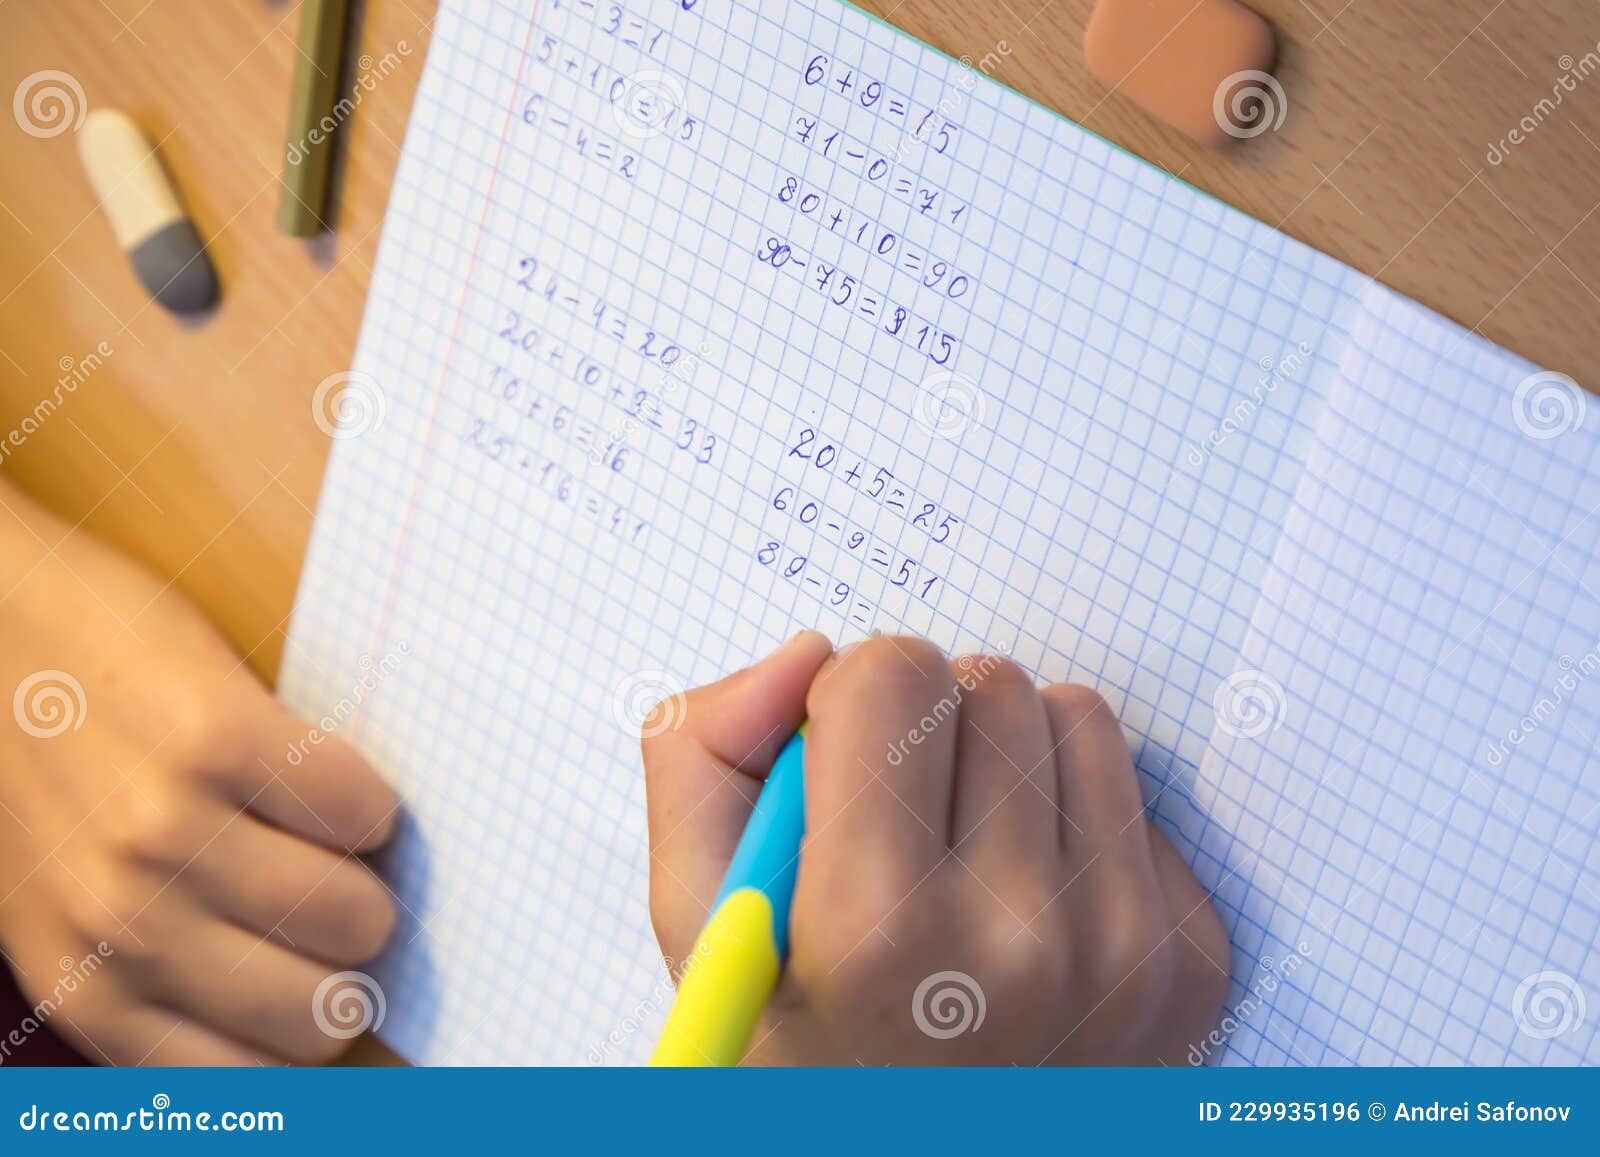 - 3 = 1
5 + 10 = 15
6 - 4 = 2
24 - 4 = 20
20 + 10 + 3 = 33
10 + 6 = 16
25 + 16 = 41
6 + 9 = 15
71 - 0 = 71
80 + 10 = 90
90 - 75 = 15
20 + 5 = 25
60 - 9 = 51
89 - 9 =
dreamstime.com
ID 229935196 © Andrei Safonov